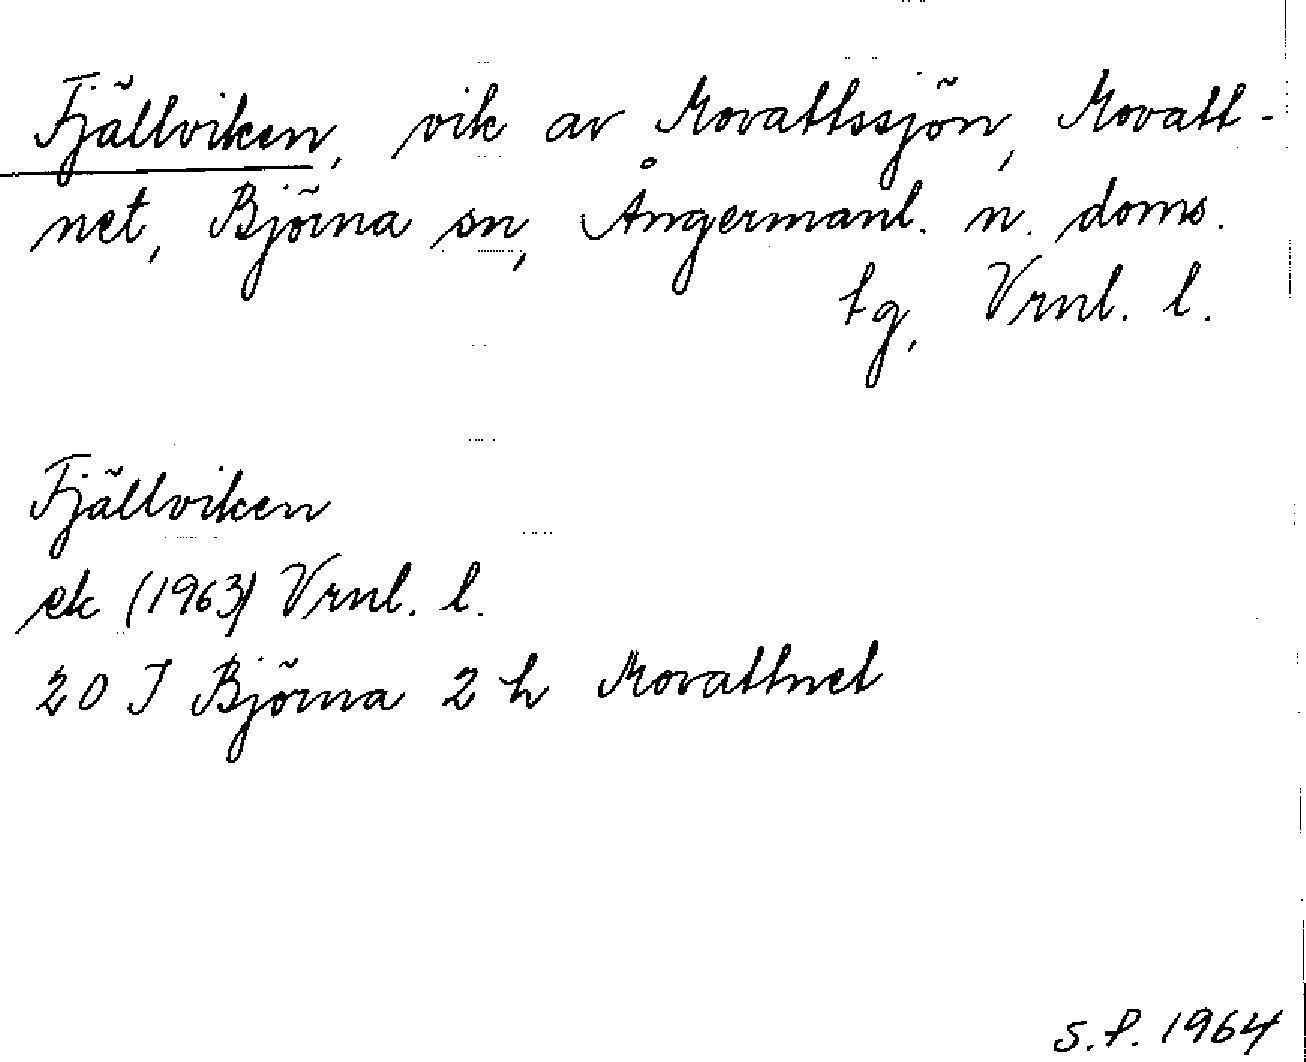 Fjällviken, vik av Movattssjön, Movatt-
net, Björna sn, Ångermanl. n. doms.
tg, Vrnl. l.
Fjällviken
ek (1963) Vrnl. l.
20 J Björna 2 h Movattnet
S.F. 1964